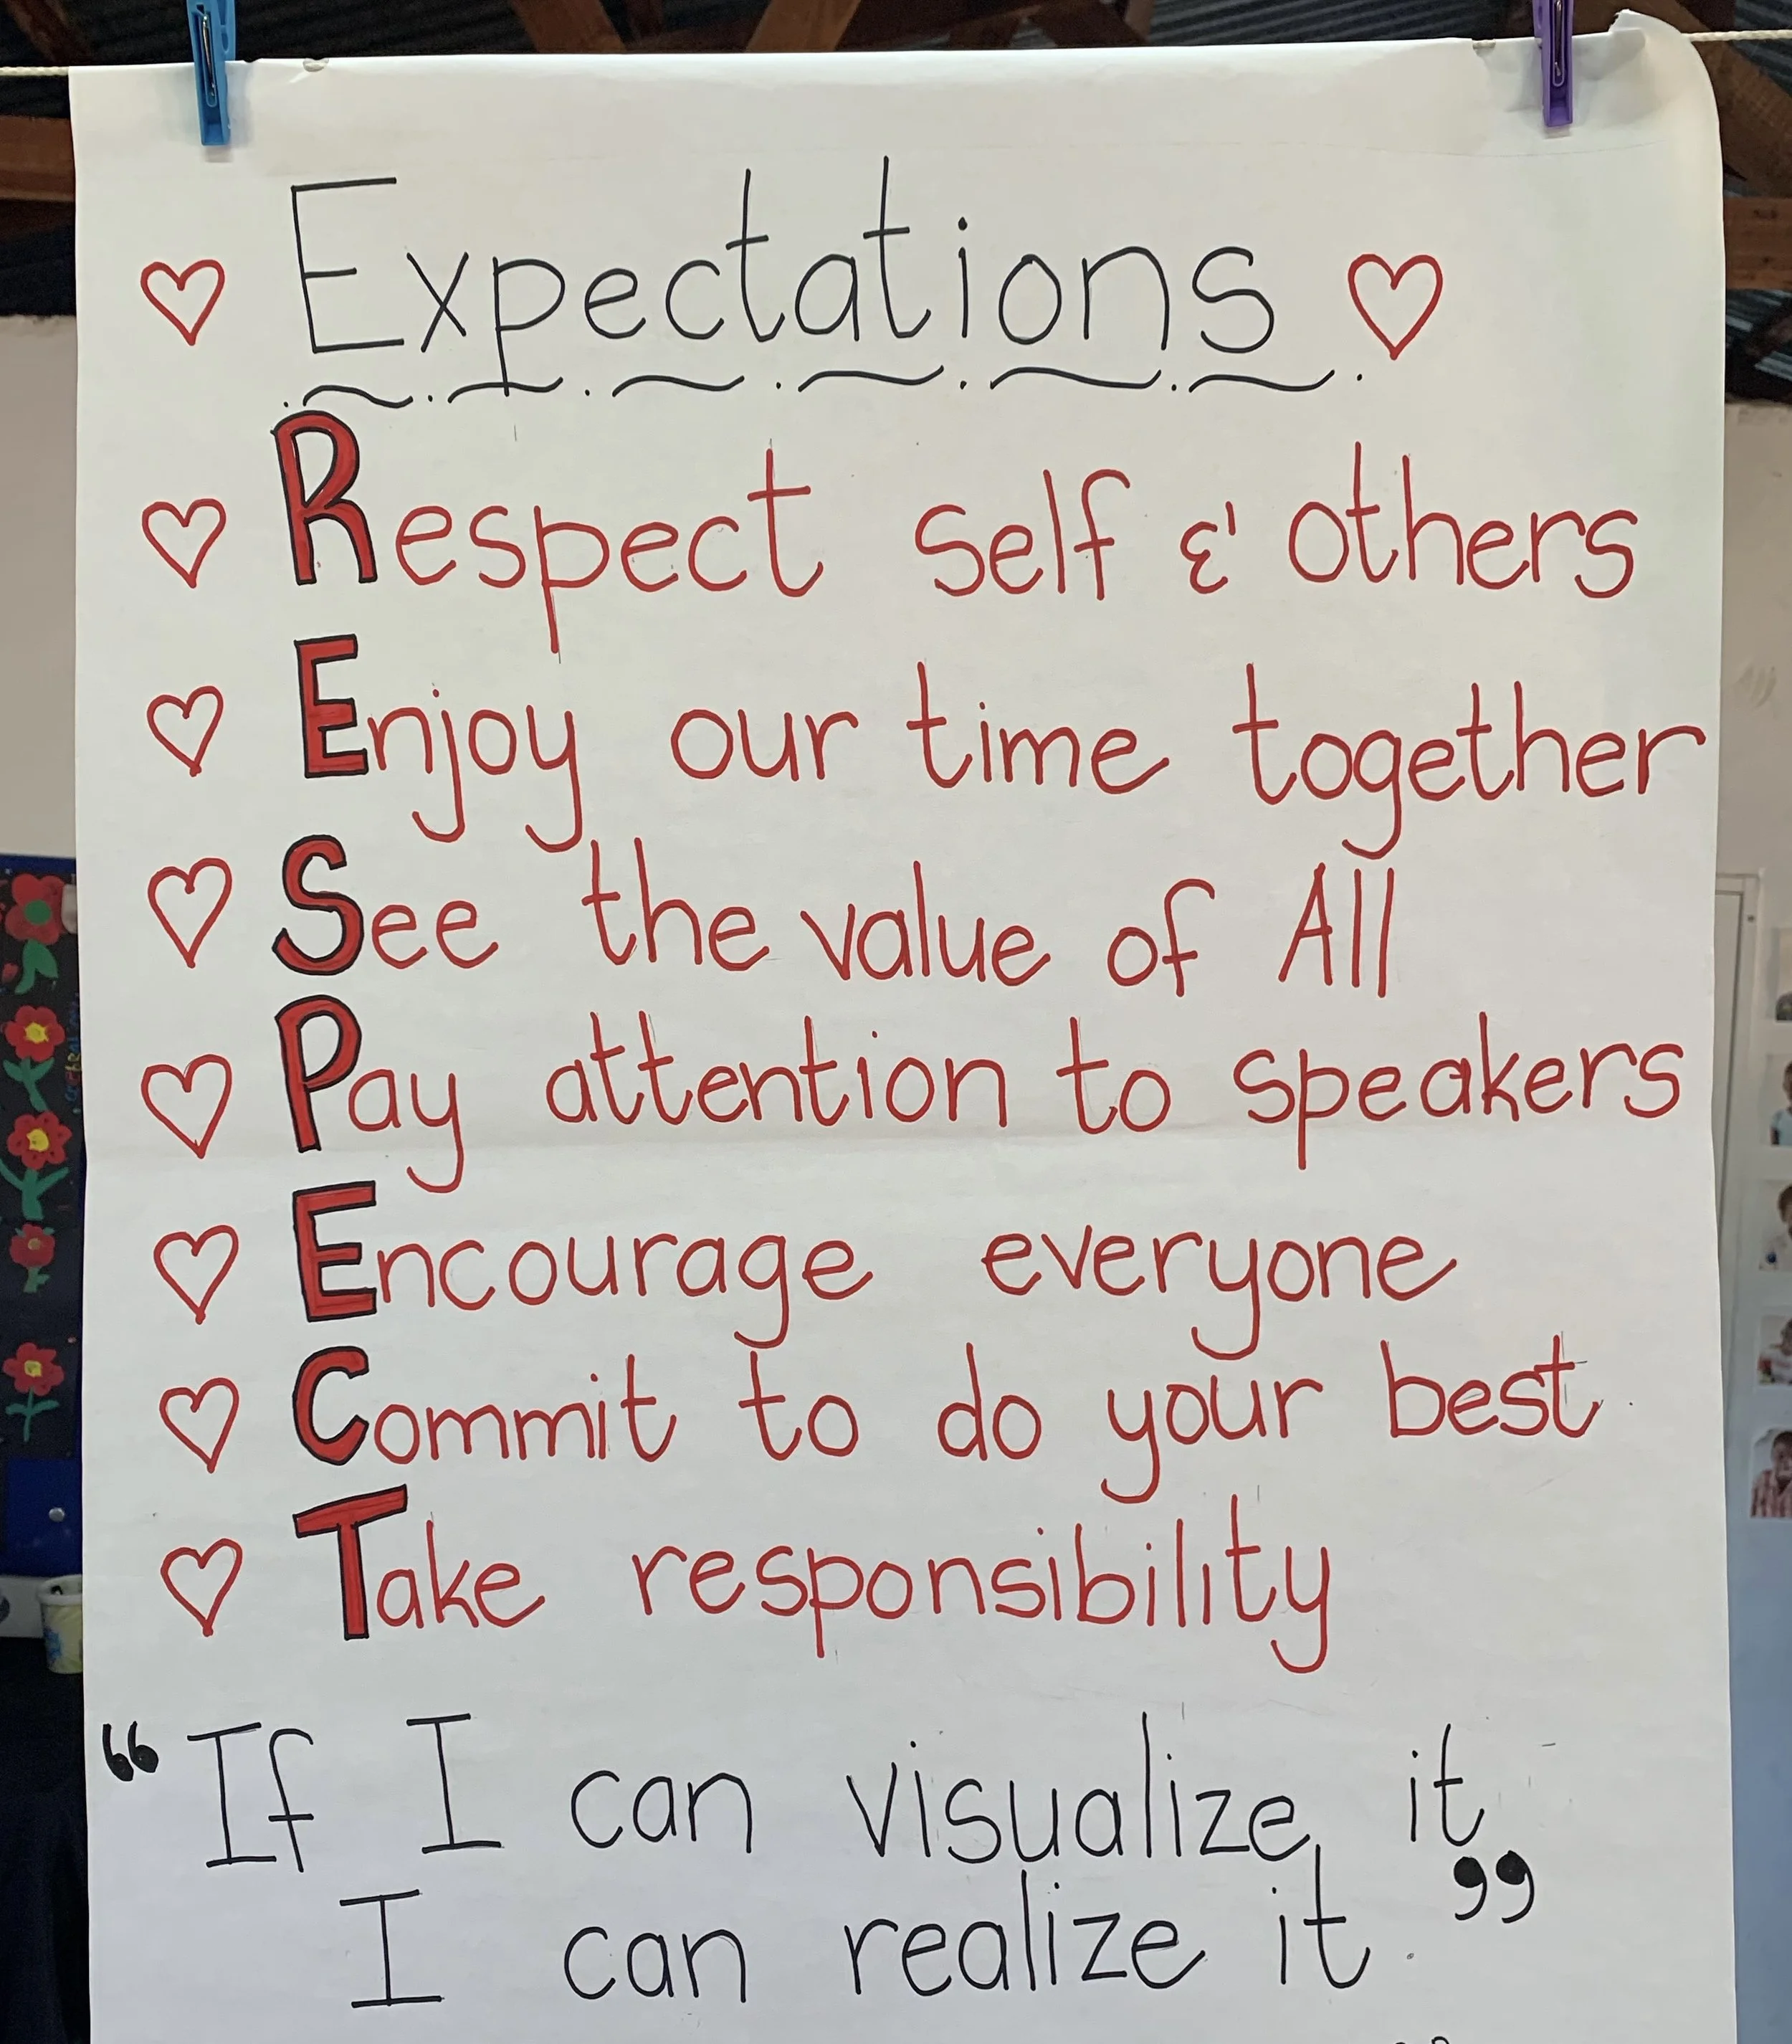 Expectations
Respect self & others
Enjoy our time together
See the value of All
Pay attention to speakers
Encourage everyone
Commit to do your best
Take responsibility
“If I can visualize it
I can realize it.”